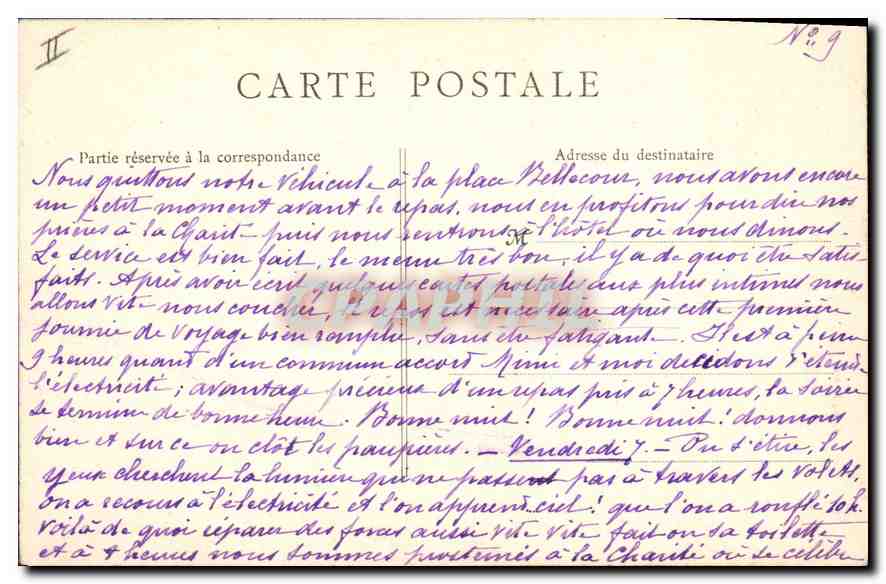 II
No. 9
CARTE POSTALE
Partie réservée à la correspondance
Adresse du destinataire
Nous quittons notre véhicule à la place Bellecour, nous avons encore
un petit moment avant le repas. nous en profitons pour dire nos
prières à la Charité puis nous rentrons à l'hôtel où nous dinons.
M
Le service est bien fait, le menu très bon, il y a de quoi être satis-
faits. Après avoir écrit quelques cartes postales aux plus intimes nous
allons vite nous coucher, le repos est nécessaire après cette première
journée de voyage bien remplie, sans être fatigante. Il est à peine
9 heures quand d'un commun accord Mimi et moi decidons d'éteindre
l'électricité; avantage précieux d'un repas pris à 7 heures, la soirée
se termine de bonne heure. Bonne nuit! Bonne nuit! dormons
bien et sur ce on clôt les paupières. - Vendredi 7. - On s'étire, les
yeux cherchent la lumière qui ne passent pas à travers les volets,
on a recours à l'électricité et l'on apprend ciel! que l'on a ronflé 10 h.
voilà de quoi réparer des forces aussi vite vite fait on sa toilette
et à heures nous sommes prosternés à la Charité où se célèbre